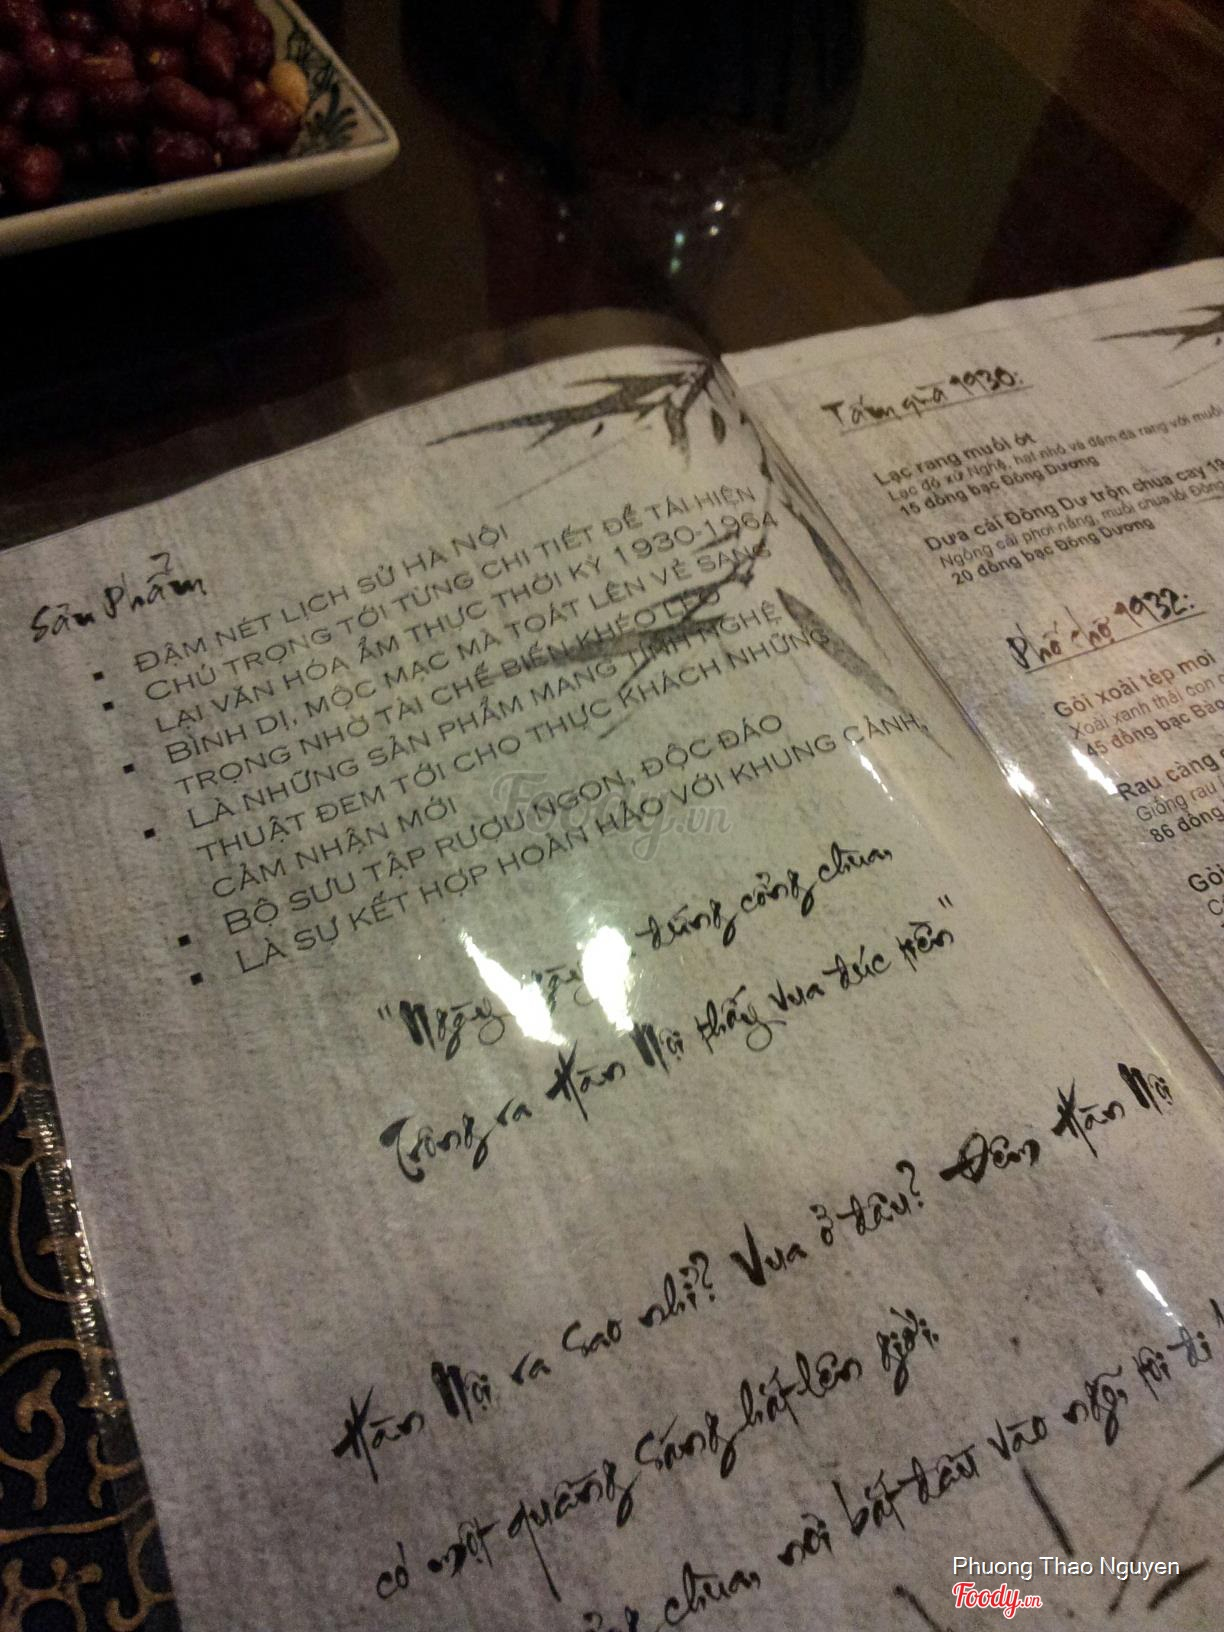 Sản Phẩm
ĐẬM NÉT LỊCH SỬ HÀ NỘI
CHÚ TRỌNG TỚI TỪNG CHI TIẾT ĐỂ TÁI HIỆN
LẠI VĂN HÓA ẨM THỰC THỜI KỲ 1930-1964
BÌNH DỊ, MỘC MẠC MÀ TOÁT LÊN VẺ SANG
TRỌNG NHỜ TÀI CHẾ BIẾN KHÉO LÉO
LÀ NHỮNG SẢN PHẨM MANG TÍNH NGHỆ
THUẬT ĐEM TỚI CHO THỰC KHÁCH NHỮNG
CẢM NHẬN MỚI
BỘ SƯU TẬP RƯỢU NGON, ĐỘC ĐÁO
LÀ SỰ KẾT HỢP HOÀN HẢO VỚI KHUNG CẢNH,
"Ngày ngày đứng cổng chùa,
Trông ra Hàn Nội thấy vua đúc tiền"
Hàn Nội ra sao nhỉ? Vua ở đâu? Đêm Hàn Nội
có một quầng sáng hắt lên giời.
chùa, nơi bắt đầu vào ngõ, tôi đi
Tấm quà 1930:
Lạc rang muối ớt
Lạc đỏ xứ Nghệ, hạt nhỏ và đậm đà rang với muối
15 đồng bạc Đông Dương
Dưa cải Đông Dư trộn chua cay 19
Ngồng cải phơi nắng, muối chua lối Đông
20 đồng bạc Đông Dương
Phố chợ 1932:
Gỏi xoài tép moi
Xoài xanh thái con
45 đồng bạc Bảo
Rau càng
Giống rau
86 đồng
Gỏi
Foody.vn
Phuong Thao Nguyen
Foody.vn